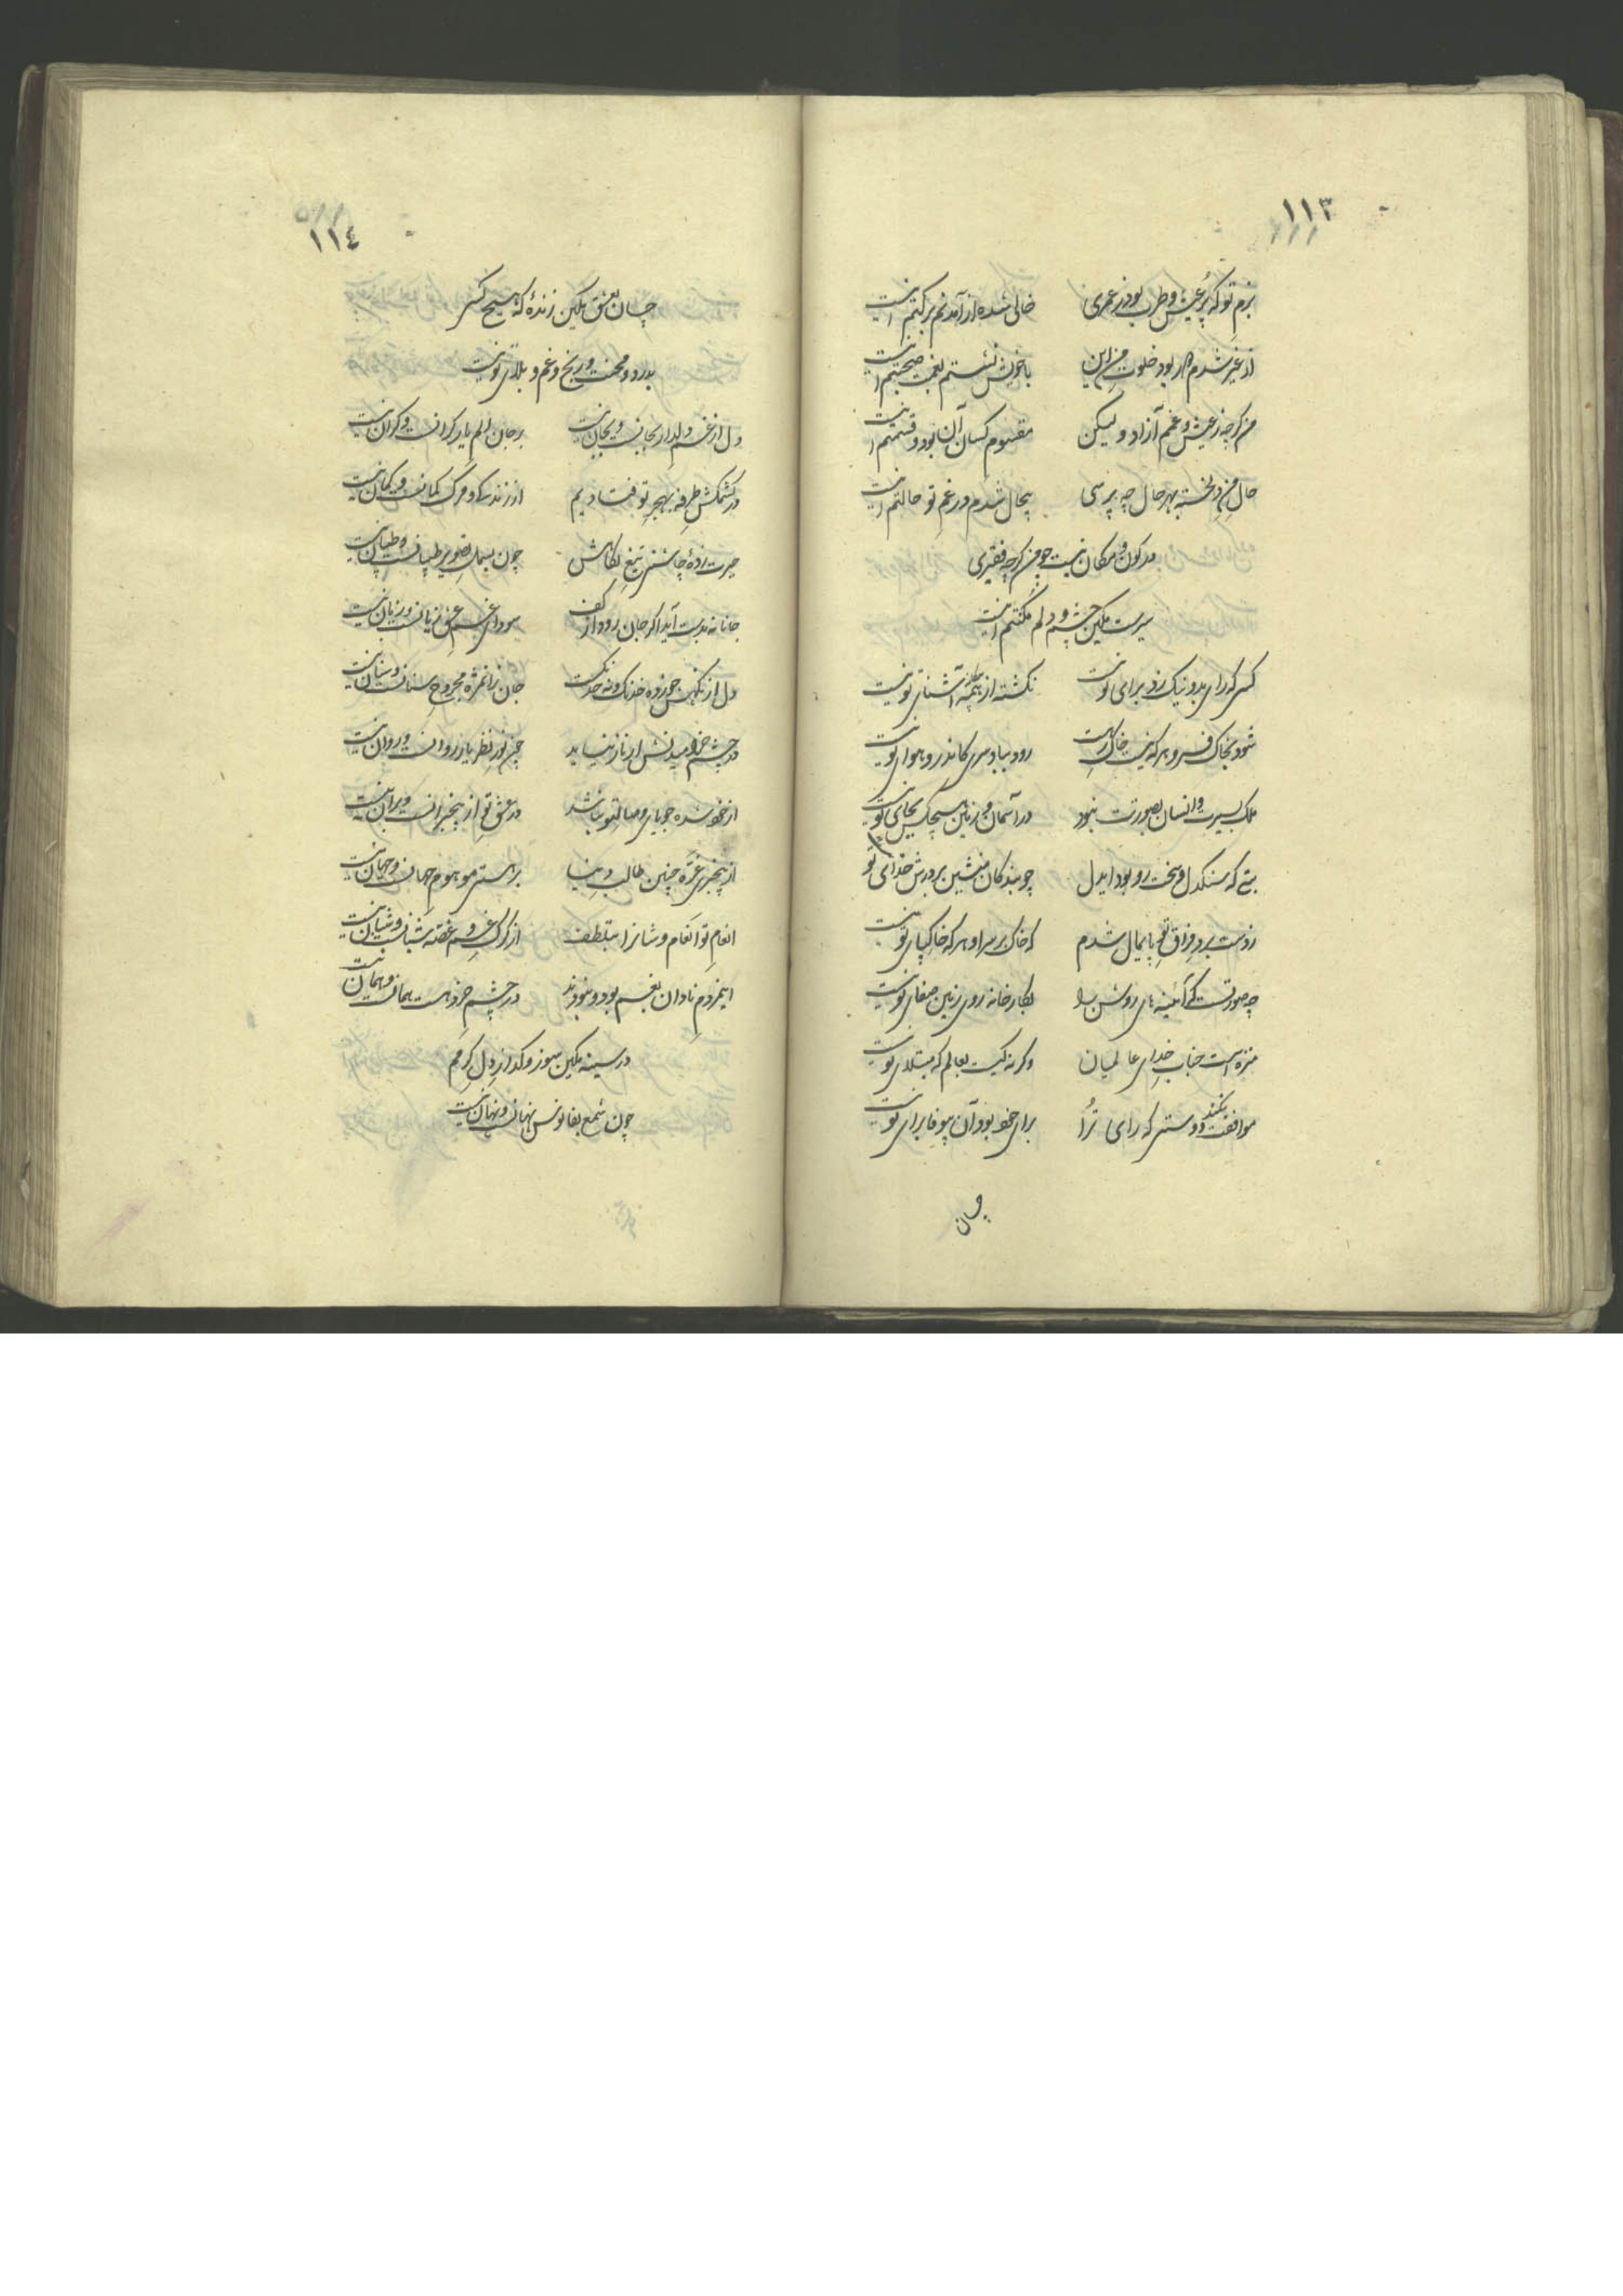 ۱۱۳
بزم تو که پر عیش و طرب بود ز عمری خالی شده از آمدنم برکتم اینست
از غیر شدم بود خلوت من این با خویش نشستم صحبتم اینست
من گرچه ز عیش و غمم آزاد و لیکن مقسوم کسان آن بود و قسمتم اینست
حال من دلخسته بهر حال چه پرسی بیحال شدم در غم تو حالتم اینست
در کون و مکان نیست چو من گرچه فقیری
سیرست مکین چشم و دلم مکنتم اینست
کسی که رای بد و نیک زد برای تو نیست نگشته از همه آشنای تو نیست
شود بخاک فرو هر که نیست خاک رهت رود بباد سری کاندرو هوای تو نیست
ملک بسیرت و انسان بصورتت نبود در آسمان و زمین هیچکس بجای تو نیست
بتی که سنگدل و سخت رو بود ایدل چو بندگان منشین بر درش خدای تو نیست
ز دست برد فراق تو پایمال شدم که خاک بر سر او هر که خاکپای تو نیست
چه صورتست که آئینه های روشن را بکارخانه روی زمین صفای تو نیست
منزه است جناب خدای عالمیان وگرنه کیست بعالم که مبتلای تو نیست
موافقت نکند دوستی که رای ترا برای خود بود آن بیوفا برای تو نیست
چسان
۱۱٤
چسان بعشق مکین زندهٔ که هیچ کسی
بدرد و محنت و رنج و غم و بلای تو نیست
دل از غم دلدار بجانست و بجان نیست بر جان الم یار گرانست و گران نیست
در کشمکش طرفه بهجر تو فتادیم از زندگی و مرگ گمانست و گمان نیست
حیرت زدهٔ چاشنی تیغ نگاهش چون بسمل تصویر طپانست و طپان نیست
جانانه بدست آید اگر جان رود از کف سودای غم عشق زیانست و زیان نیست
دل از نگهش خورده خدنگ و نه خدنگست جان زان مژه مجروح سنانست و سنان نیست
در چشم خرامیدنش از ناز نیاید چون نور نظر یار روانست و روان نیست
از خود شده جویای وصال تو نباشد در عشق تو از بیخبرانست و بر آن نیست
از بیخبری غره چنین طالب دنیا بر هستی موهوم جهانست و جهان نیست
انعام تو انعام وشانرا بتلطف از گرگ غم و غصه شبانست و شبان نیست
اینمردم نادان بغم بود و نبودند در چشم خرد هست همانست و همان نیست
در سینه مکین سوز و گداز دل گرمم
چون شمع بفانوس نهانست و نهان نیست